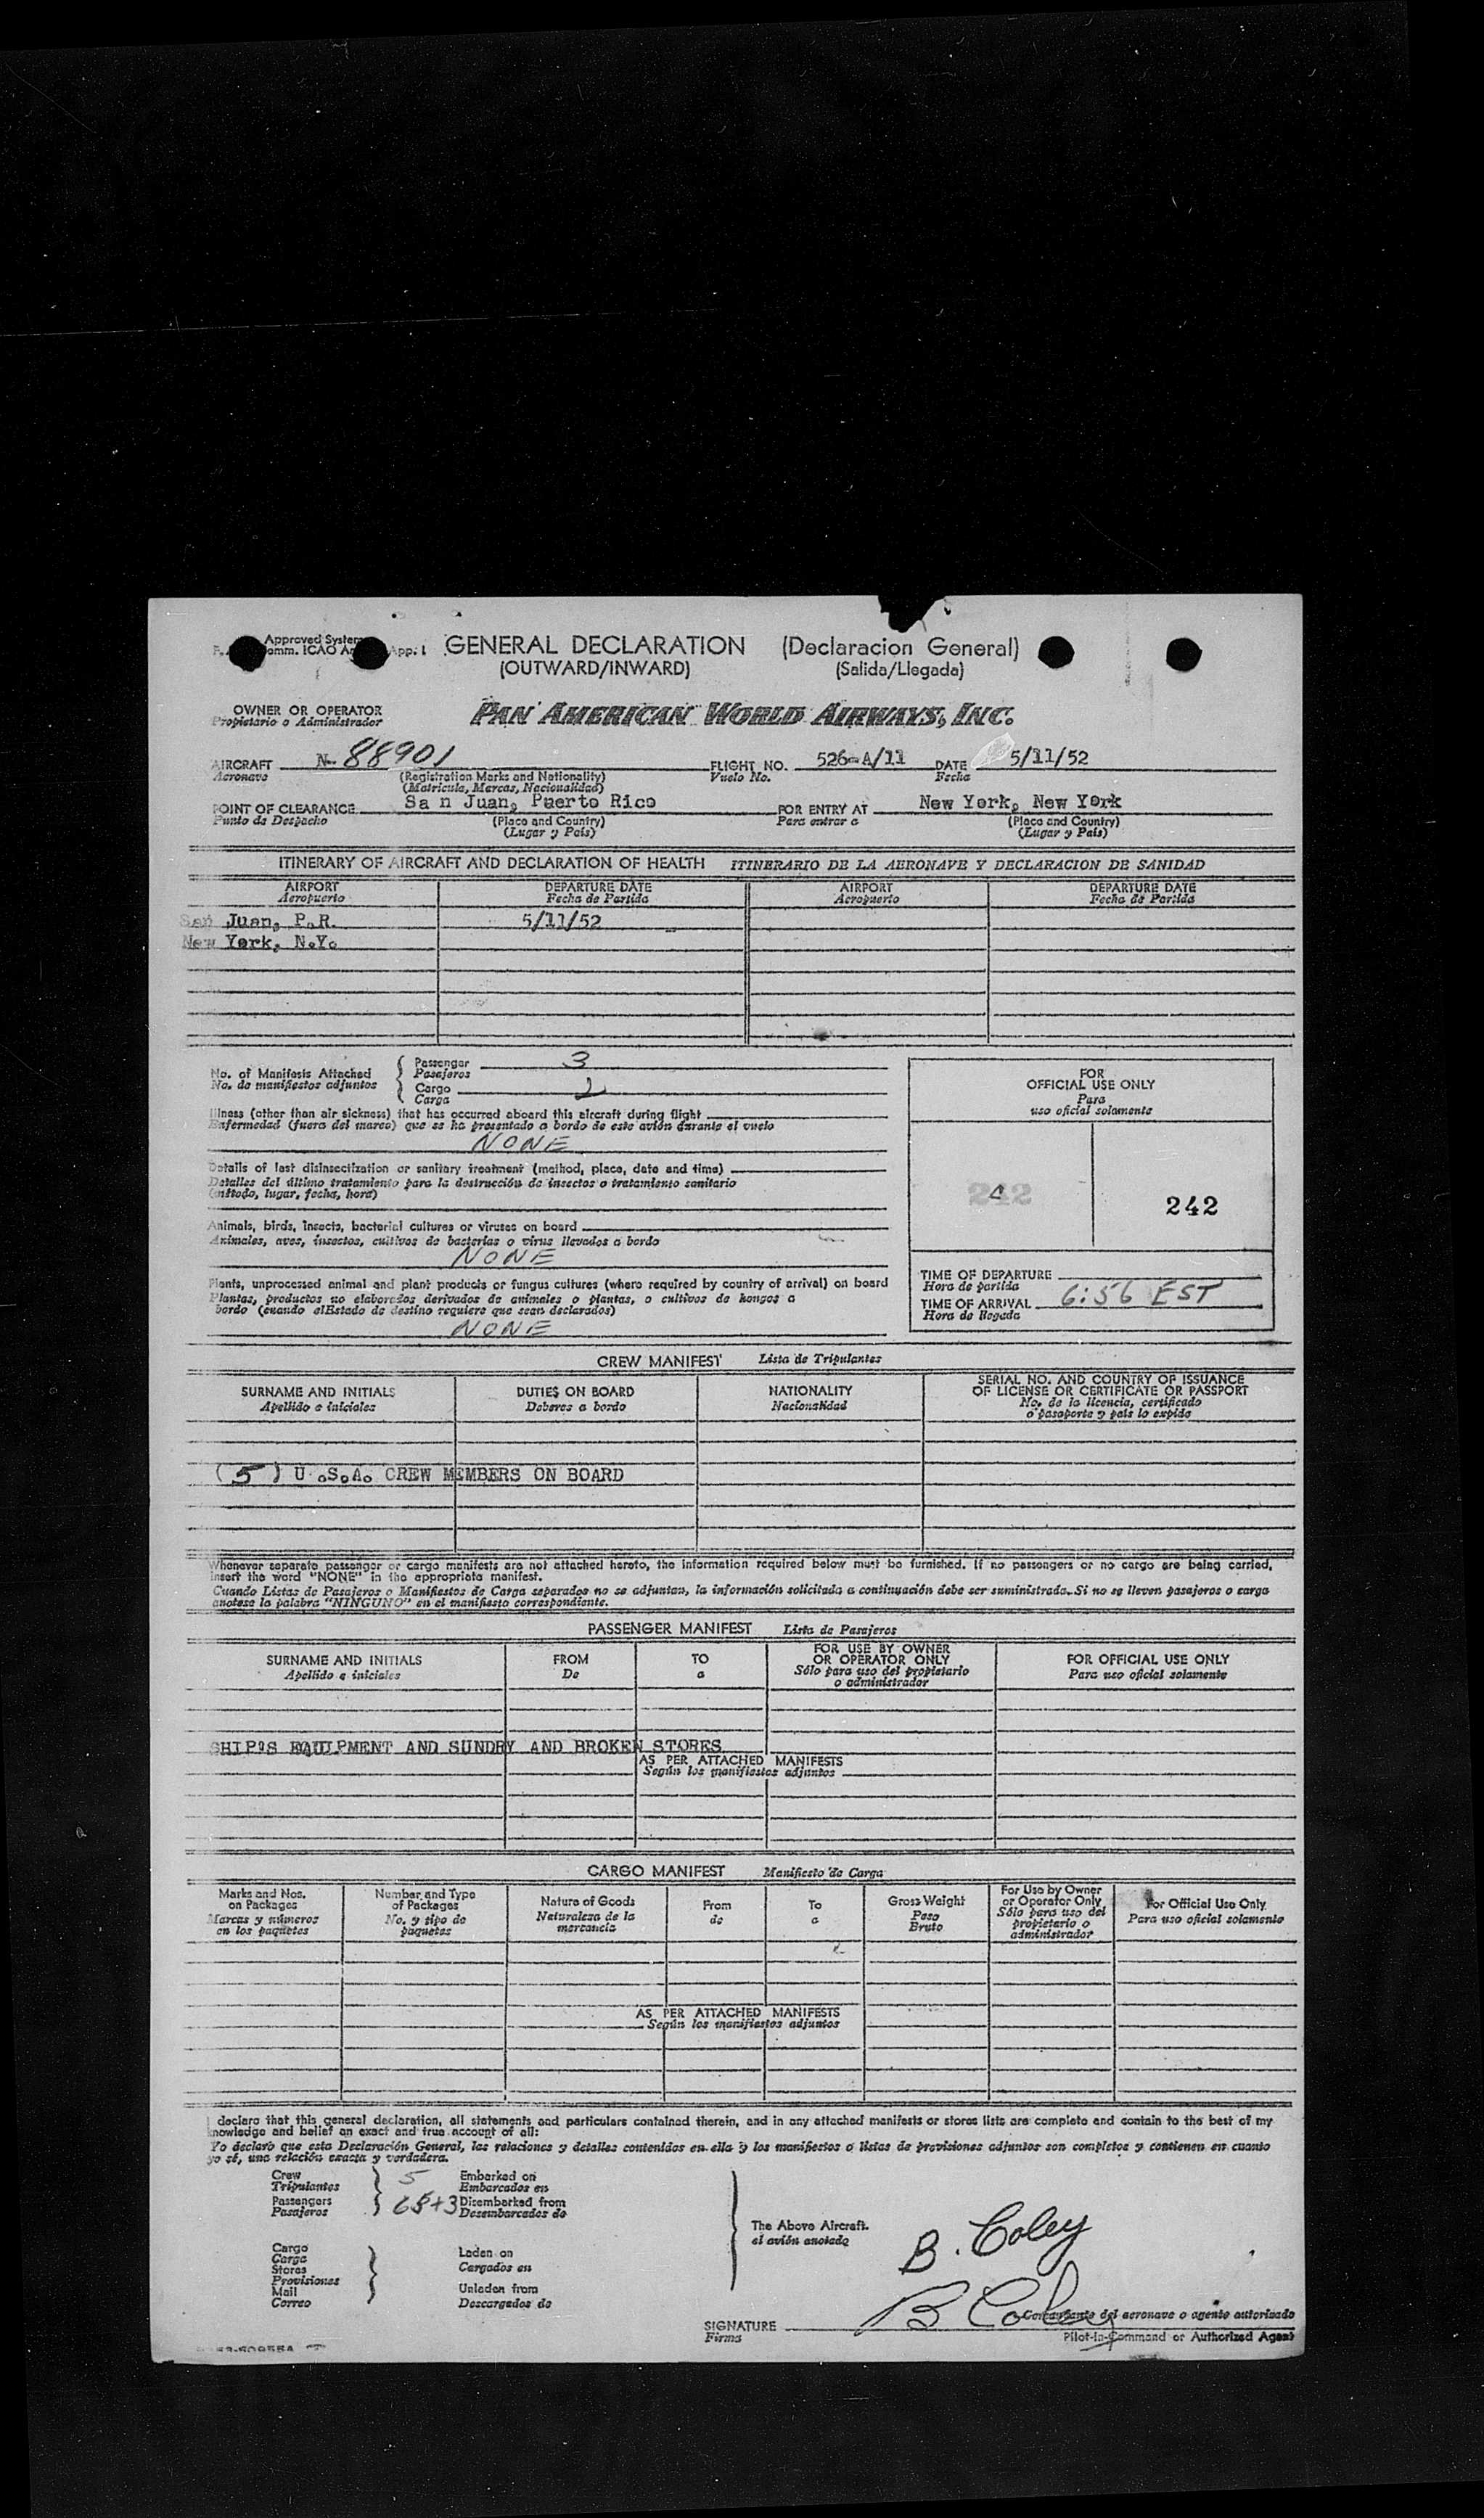 Approved System
omm. ICAO An App. 1
GENERAL DECLARATION (Declaracion General)
(OUTWARD/INWARD) (Salida/Llegada)
OWNER OR OPERATOR
Propietario o Administrador
PAN AMERICAN WORLD AIRWAYS, INC.
AIRCRAFT N- 88901 FLIGHT NO. 526-A/11 DATE 5/11/52
Aeronave (Registration Marks and Nationality) Vuelo No. Fecha
(Matricula, Marcas, Nacionalidad)
POINT OF CLEARANCE Sa n Juan, Puerto Rico FOR ENTRY AT New York, New York
Punto de Despacho (Place and Country) Para entrar a (Place and Country)
(Lugar y País) (Lugar y País)
ITINERARY OF AIRCRAFT AND DECLARATION OF HEALTH ITINERARIO DE LA AERONAVE Y DECLARACION DE SANIDAD
AIRPORT DEPARTURE DATE AIRPORT DEPARTURE DATE
Aeropuerto Fecha de Partida Aeropuerto Fecha de Partida
San Juan, P.R. 5/11/52
New York, N.Y.
No. of Manifests Attached
No. de manifiestos adjuntos
Passenger 3
Pasajeros
Cargo 2
Carga
Illness (other than air sickness) that has occurred aboard this aircraft during flight
Enfermedad (fuera del mareo) que se ha presentado a bordo de este avión durante el vuelo
NONE
Details of last disinsectization or sanitary treatment (method, place, date and time)
Detalles del último tratamiento para la destrucción de insectos o tratamiento sanitario
(método, lugar, fecha, hora)
Animals, birds, insects, bacterial cultures or viruses on board
Animales, aves, insectos, cultivos de bacterias o virus llevados a bordo
NONE
Plants, unprocessed animal and plant products or fungus cultures (where required by country of arrival) on board
Plantas, productos no elaborados derivados de animales o plantas, o cultivos de hongos a
bordo (cuando elEstado de destino requiere que sean declarados)
NONE
FOR
OFFICIAL USE ONLY
Para
uso oficial solamente
242 242
TIME OF DEPARTURE
Hora de partida
TIME OF ARRIVAL 6:56 EST
Hora de llegada
CREW MANIFEST Lista de Tripulantes
SURNAME AND INITIALS DUTIES ON BOARD NATIONALITY SERIAL NO. AND COUNTRY OF ISSUANCE
OF LICENSE OR CERTIFICATE OR PASSPORT
Apellido e iniciales Deberes a bordo Nacionalidad No. de la licencia, certificado
o pasaporte y país lo expide
( 5 ) U.S.A. CREW MEMBERS ON BOARD
Whenever separate passenger or cargo manifests are not attached hereto, the information required below must be furnished. If no passengers or no cargo are being carried,
insert the word "NONE" in the appropriate manifest.
Cuando Listas de Pasajeros o Manifiestos de Carga separados no se adjuntan, la información solicitada a continuación debe ser suministrada. Si no se lleven pasajeros o carga
anotese la palabra "NINGUNO" en el manifiesto correspondiente.
PASSENGER MANIFEST Lista de Pasajeros
SURNAME AND INITIALS FROM TO FOR USE BY OWNER
OR OPERATOR ONLY FOR OFFICIAL USE ONLY
Apellido e iniciales De a Sólo para uso del propietario
o administrador Para uso oficial solamente
SHIP'S EQUIPMENT AND SUNDRY AND BROKEN STORES
AS PER ATTACHED MANIFESTS
Según los manifiestos adjuntos
CARGO MANIFEST Manifiesto de Carga
Marks and Nos.
on Packages
Marcas y números
en los paquetes
Number and Type
of Packages
No. y tipo de
paquetes
Nature of Goods
Naturaleza de la
mercancia
From
de
To
a
Gross Weight
Peso
Bruto
For Use by Owner
or Operator Only
Sólo para uso del
propietario o
administrador
For Official Use Only
Para uso oficial solamente
AS PER ATTACHED MANIFESTS
Según los manifiestos adjuntos
I declare that this general declaration, all statements and particulars contained therein, and in any attached manifests or stores lists are complete and contain to the best of my
knowledge and belief an exact and true account of all:
Yo declaro que esta Declaración General, las relaciones y detalles contenidos en ella y los manifiestos o listas de provisiones adjuntos son completos y contienen en cuanto
yo sé, una relación exacta y verdadera.
Crew 5 Embarked on
Tripulantes Embarcados en
Passengers 65+3 Disembarked from
Pasajeros Desembarcados de
The Above Aircraft.
el avión anotado
Cargo
Carga
Stores
Provisiones
Mail
Correo
Laden on
Cargados en
Unladen from
Descargados de
B. Coley
B Coley
SIGNATURE
Firma
Comandante del aeronave o agente autorizado
Pilot-in-Command or Authorized Agent